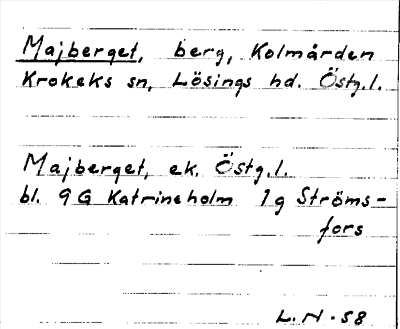 Majberget, berg, Kolmården
Krokeks sn, Lösings hd. Östg.l.
Majberget, ek. Östg.l.
bl. 9G Katrineholm 1g Ströms-
fors
L.N.58